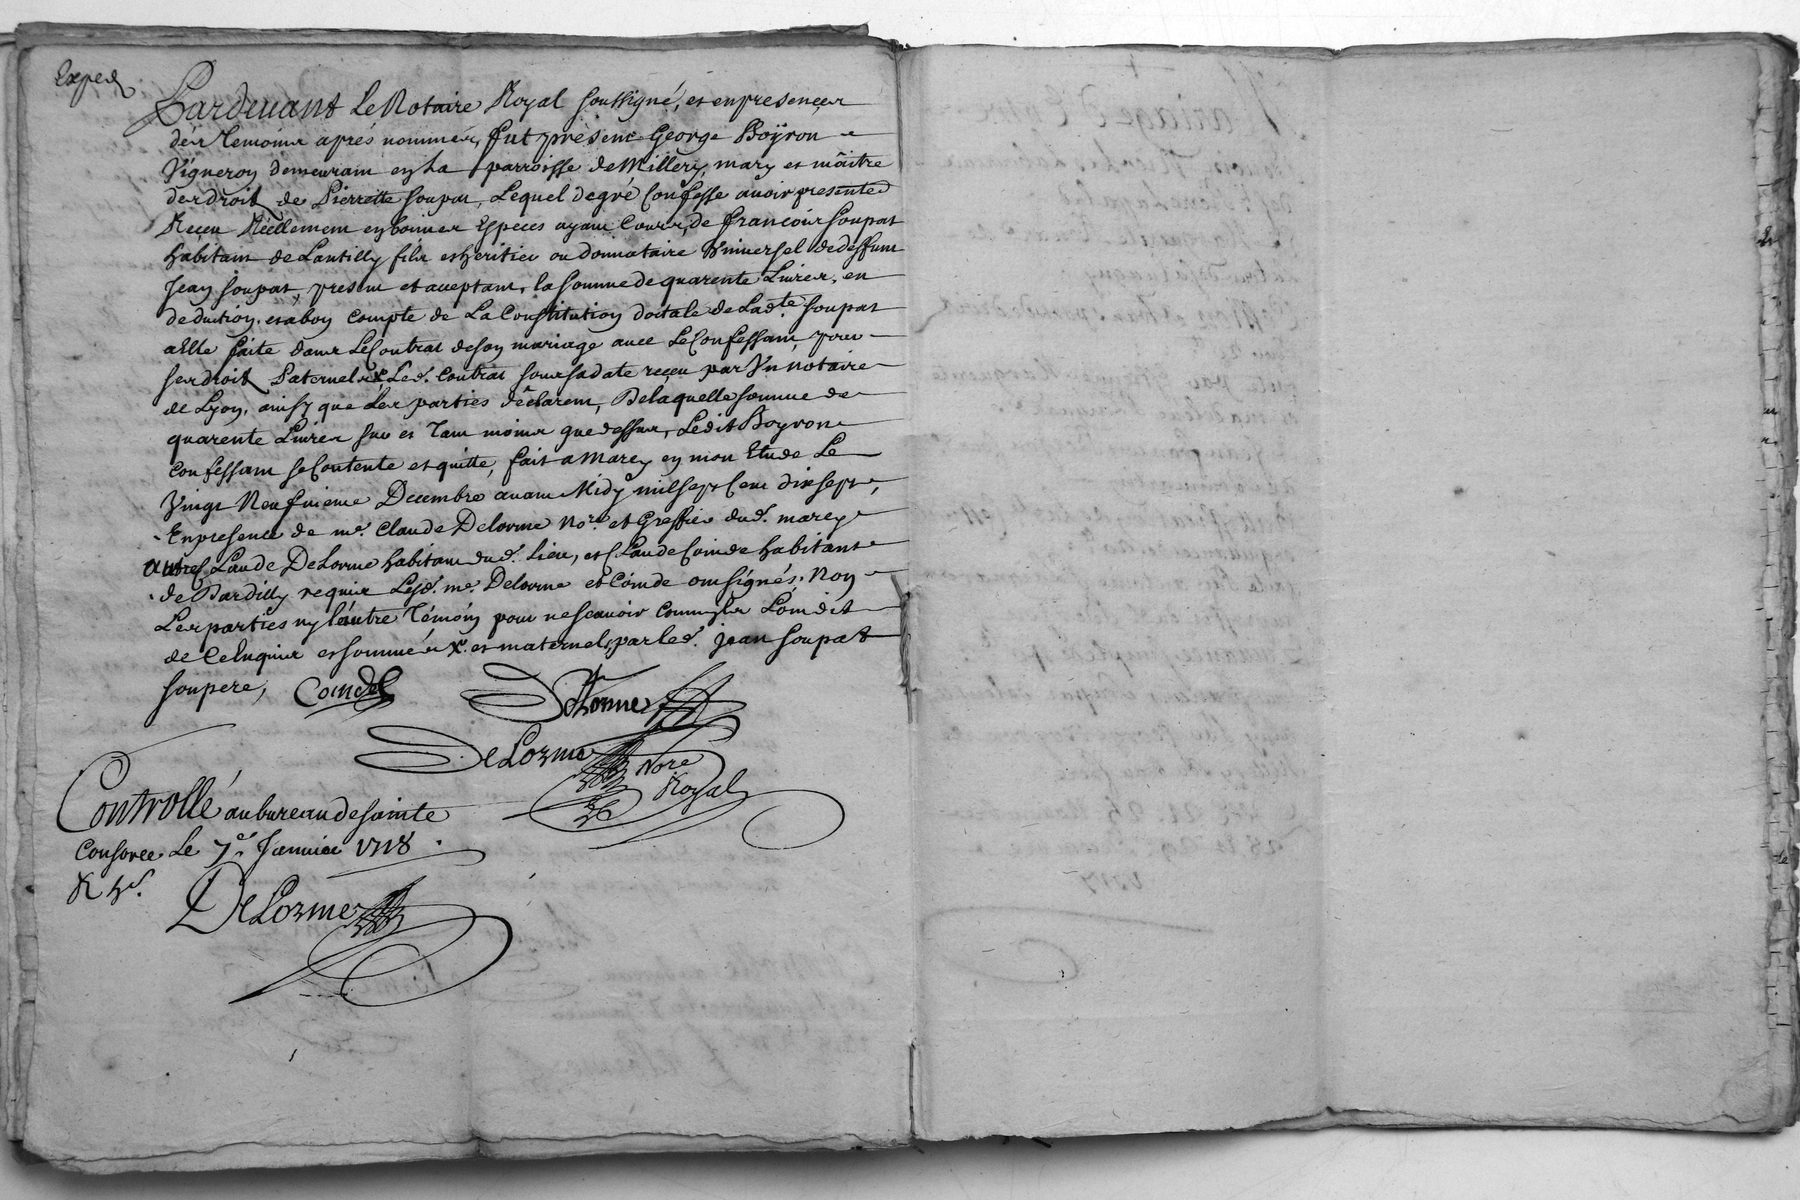 Exped
Pardevant Le Notaire Royal soussigné, et en presences
dés Temoins aprés nommés, fut présent George Boÿron
Vigneron demeurant en La parroisse de Millery, mary et mâitre
des droits de Pierrette soupat, Lequel de gré Confesse avoir presented
Receu Réellement en bonnes Especes ayant Cours, de francois soupat
habitant de Lantilly fils et heritier ou donnataire Vniversel de deffunt
Jean soupat, present et acceptant, la somme de quarente Livres, en
deduction, et a bon compte de La Constitution dottale de Lad.te soupat
a Elle faite dans Le Contrat de son mariage avec Le Confessant, pour
ses droits Paternels X Led. Contrat sous sa date receu par Vn notaire
de Lyon, ainsy que Les parties déclarent, De laquelle somme de
quarente Livres sur et Tant moins que dessus, Ledit Boyron
Confessant se Contente et quitte, fait a Marcy en mon Etude Le
Vingt Neufvieme Decembre avant Midy mil sept Cent dix sept,
En presence de me. Claude Delorme No.re et Greffier dud. marcy
autre Claude DeLorme habitant dud. Lieu, et Claude Coinde habitant
de Dardilly requis Lesd. me. Delorme et Coinde ont signés, Non
Les parties ny l'autre Témoin pour ne scavoir comm'ils L'ont dit
de Ce Enquis et sommés X. et maternels, par led. jean soupat
son pere,
Coinde
DeLorme
DeLorme Nore
Royal
Controllé au bureau de sainte
Consorce Le 7.e Janvier 1718.
R
DeLorme